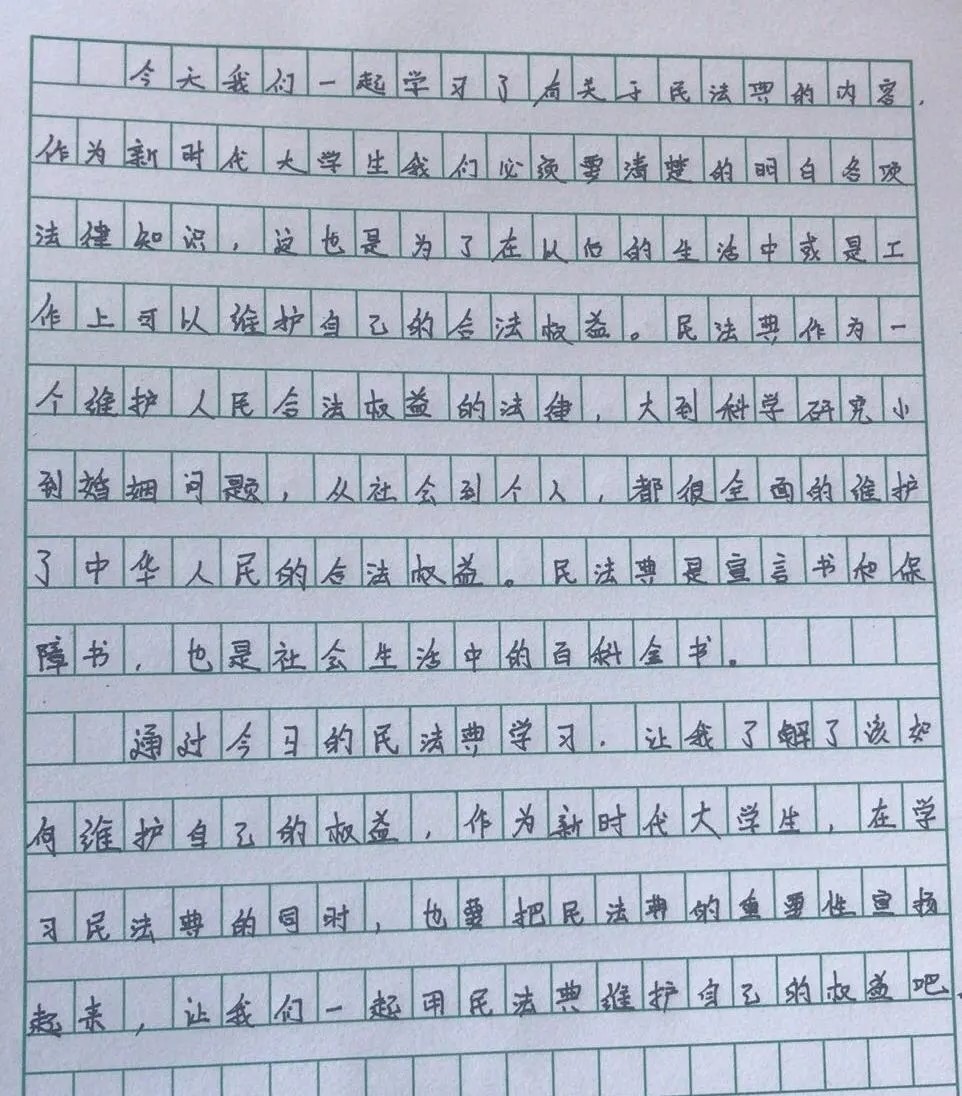 今天我们一起学习了有关于民法典的内容，
作为新时代大学生我们必须要清楚的明白各项
法律知识，这也是为了在以后的生活中或是工
作上可以维护自己的合法权益。民法典作为一
个维护人民合法权益的法律，大到科学研究小
到婚姻问题，从社会到个人，都很全面的维护
了中华人民的合法权益。民法典是宣言书和保
障书，也是社会生活中的百科全书。
通过今日的民法典学习，让我了解了该如
何维护自己的权益，作为新时代大学生，在学
习民法典的同时，也要把民法典的重要性宣扬
起来，让我们一起用民法典维护自己的权益吧．